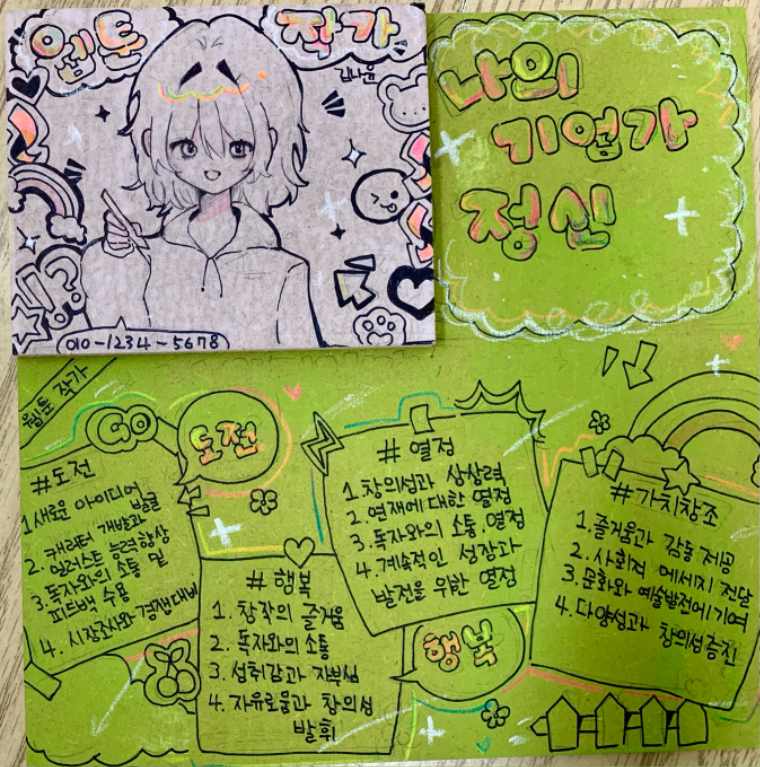 웹툰 작가
김나윤
!?
010-1234-5678
나의
기업가
정신
웹툰 작가
GO
도전
#도전
1. 새로운 아이디어
발굴
2. 캐릭터 개발과
일러스트 능력향상
3. 독자와의 소통 및
피드백 수용
4. 시장조사와 경쟁대비
#행복
1. 창작의 즐거움
2. 독자와의 소통
3. 성취감과 자부심
4. 자유로움과 창의성
발휘
#열정
1. 창의성과 상상력
2. 연재에 대한 열정
3. 독자와의 소통, 열정
4. 계속적인 성장과
발전을 위한 열정
행복
#가치창조
1. 즐거움과 감동 제공
2. 사회적 메세지 전달
3. 문화와 예술발전에 기여
4. 다양성과 창의성증진